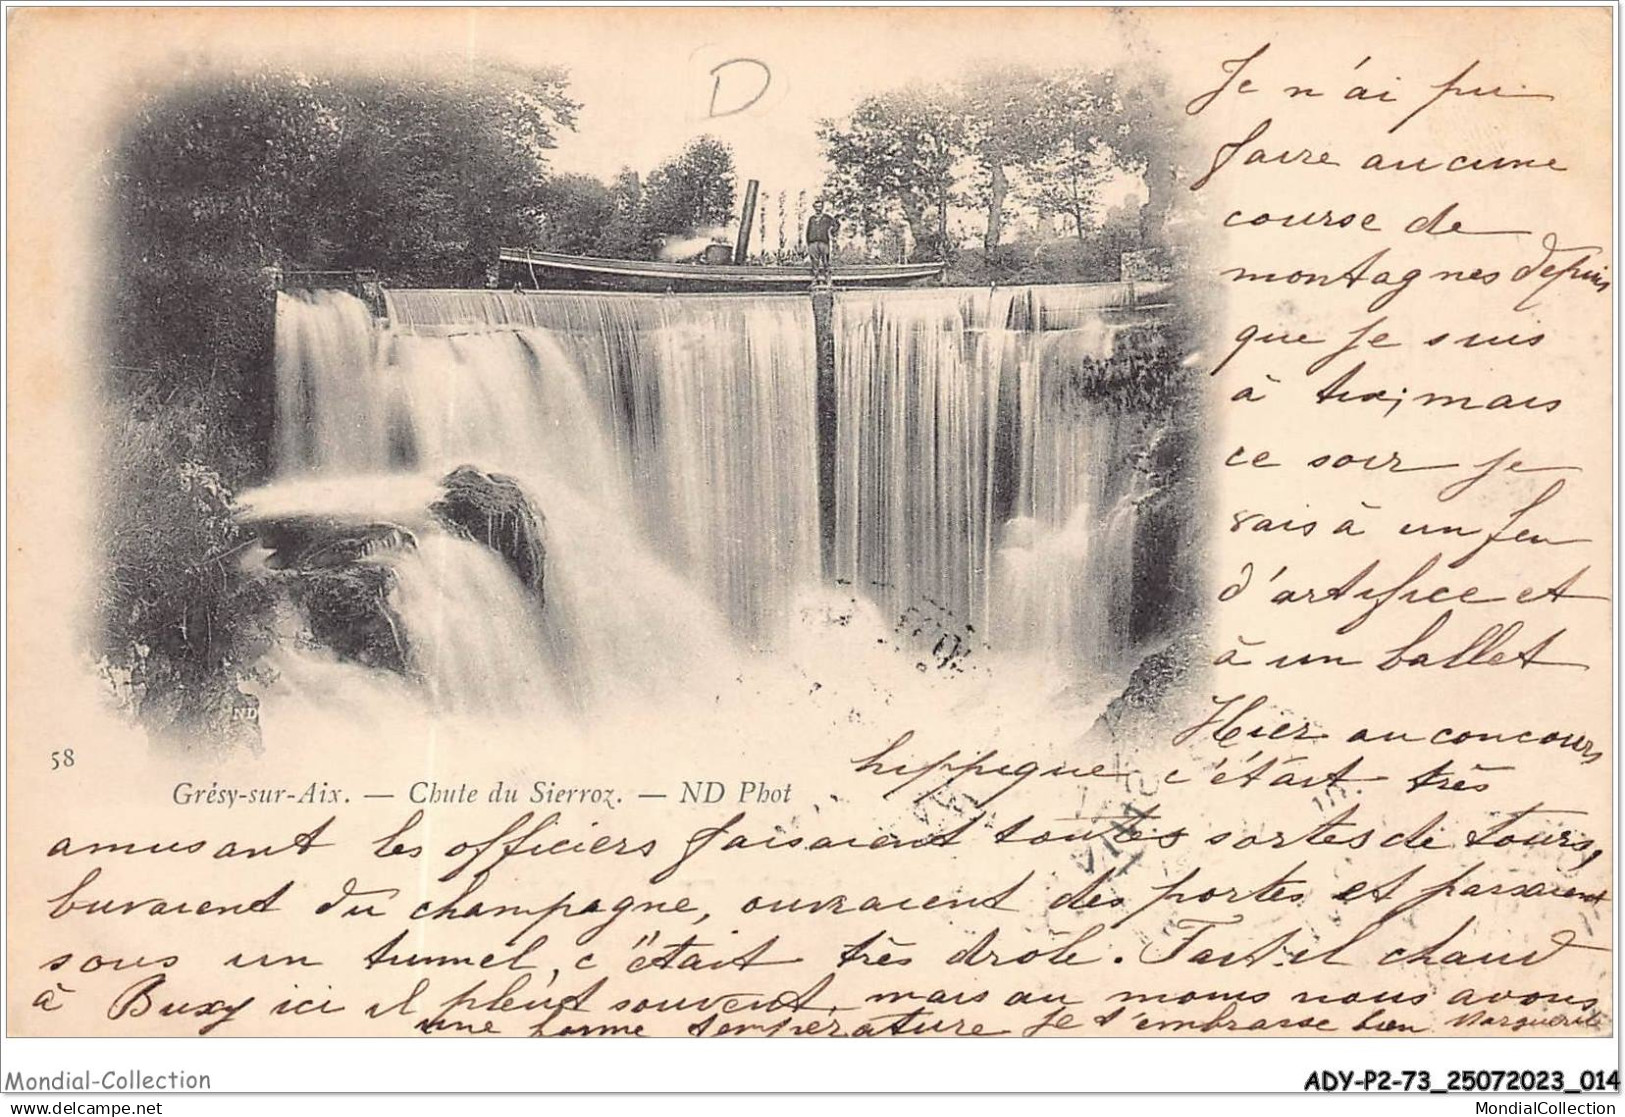 D
Je n'ai pu
faire aucune
course de
montagnes depuis
que je suis
à Aix; mais
ce soir je
vais à un feu
d'artifice et
à un ballet
Hier au concours
hippique c'était très
amusant les officiers faisaient toutes sortes de tours,
buvaient du champagne, ouvraient des portes et passaient
sous un tunnel, c'était très drôle. Fait-il chaud
à Buxy ici il pleut souvent, mais au moins nous avons
une bonne température je t'embrasse bien Marguerite
ND
58
Grésy-sur-Aix. — Chute du Sierroz. — ND Phot
Mondial-Collection
ADY-P2-73_25072023_014
www.delcampe.net
MondialCollection